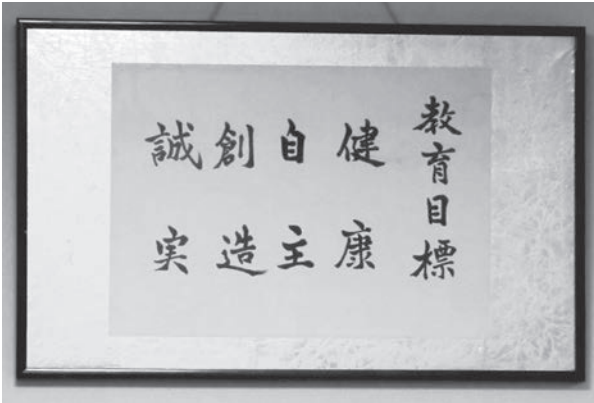 教育目標
健康
自主
創造
誠実